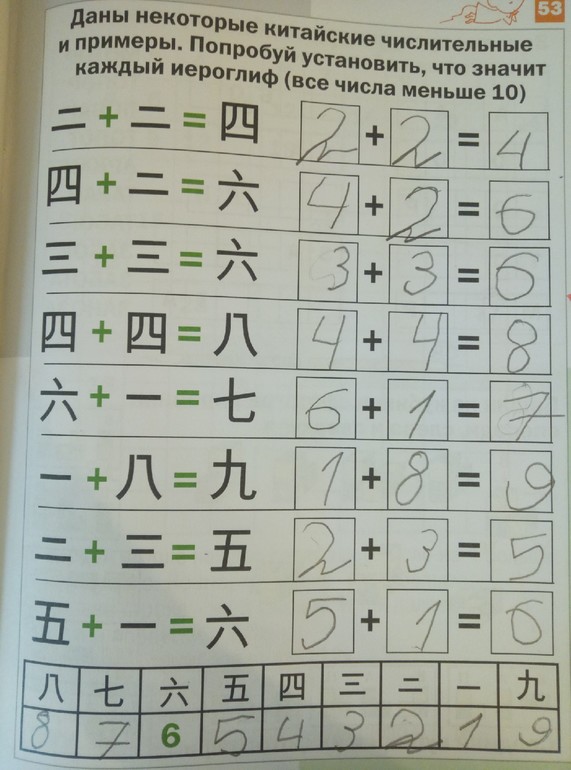 53
Даны некоторые китайские числительные
и примеры. Попробуй установить, что значит
каждый иероглиф (все числа меньше 10)
二 + 二 = 四 2 + 2 = 4
四 + 二 = 六 4 + 2 = 6
三 + 三 = 六 3 + 3 = 6
四 + 四 = 八 4 + 4 = 8
六 + 一 = 七 6 + 1 = 7
一 + 八 = 九 1 + 8 = 9
二 + 三 = 五 2 + 3 = 5
五 + 一 = 六 5 + 1 = 6
八 七 六 五 四 三 二 一 九
8 7 6 5 4 3 2 1 9